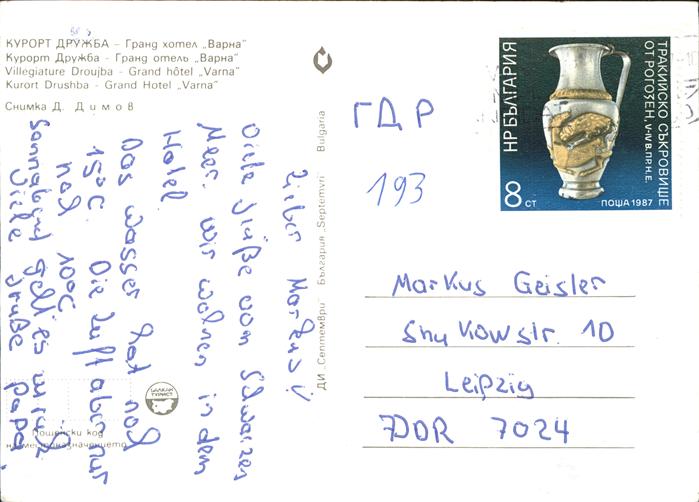 КУРОРТ ДРУЖБА – Гранд хотел „Варна“
Курорт Дружба - Гранд отель „Варна“
Villégiature Droujba - Grand hôtel „Varna“
Kurort Drushba - Grand Hotel „Varna“
Снимка Д. Димов
Lieber Markus!
Viele Grüße vom Schwarzen
Meer. Wir wohnen in dem
Hotel.
Das Wasser hat noch
15°C. Die Luft aber nur
noch 10°C
Sonnabend
Viele Grüße Papa
ДИ „Септември“ България "Septemvri" Bulgaria
БАЛКАН
ТУРИСТ
Пощенски код
НР БЪЛГАРИЯ
ТРАКИЙСКО СЪКРОВИЩЕ
ОТ РОГОЗЕН, V-IV В. ПР. Н. Е.
8 СТ
ПОЩА 1987
ГДР
193
Markus Geisler
Shukowstr. 10
Leipzig
DDR 7024